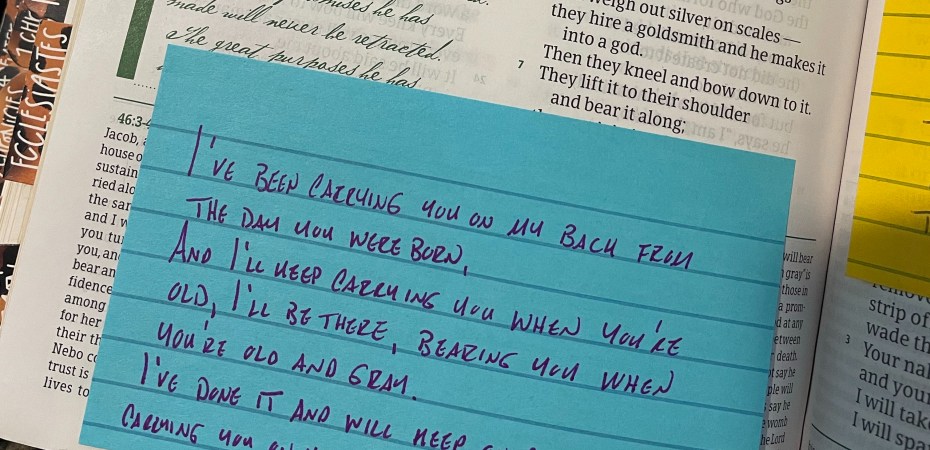 CHRONICLES
1 CHR
ECCLESIASTES
promises he has
made will never be retracted.
The great purposes he has
weigh out silver on scales—
they hire a goldsmith and he makes it
into a god.
7 Then they kneel and bow down to it.
They lift it to their shoulder
and bear it along;
46:3-4
Jacob,
house o
sustain
ried alo
the sar
and I w
you tu
you, an
bear an
fidence
among
for her
their th
Nebo co
trust is
lives to
I'VE BEEN CARRYING YOU ON MY BACK FROM
THE DAY YOU WERE BORN,
AND I'LL KEEP CARRYING YOU WHEN YOU'RE
OLD, I'LL BE THERE, BEARING YOU WHEN
YOU'RE OLD AND GRAY.
I'VE DONE IT AND WILL KEEP
CARRYING YOU
will bear
gray" is
those in
a prom-
d at any
etween
death.
t say he
ple will
say he
womb
he Lord
remov
strip of
wade th
3 Your nak
and your
I will tak
I will spa